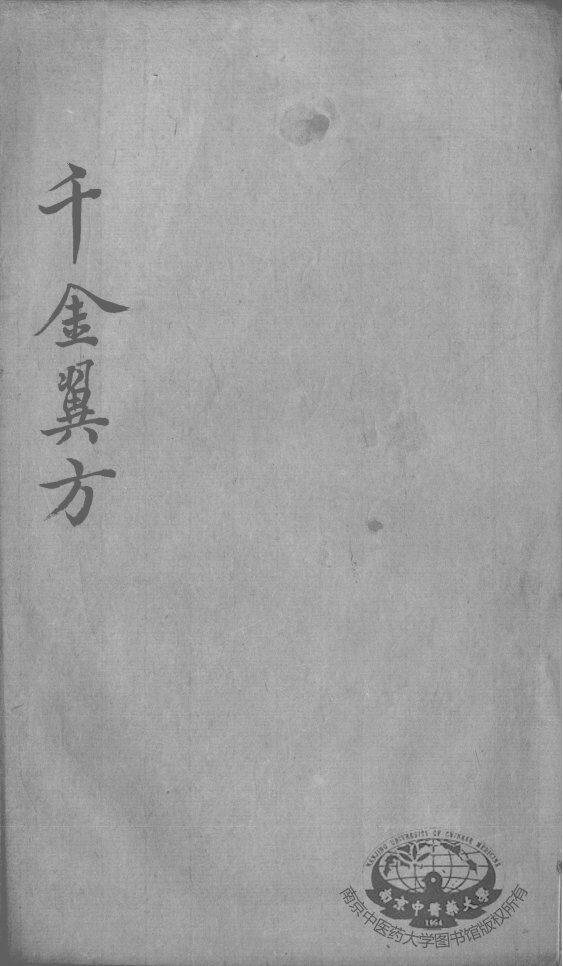 千金翼方
NANJING UNIVERSITY OF CHINESE MEDICINE
南京中醫藥大學
1954
南京中医药大学图书馆版权所有